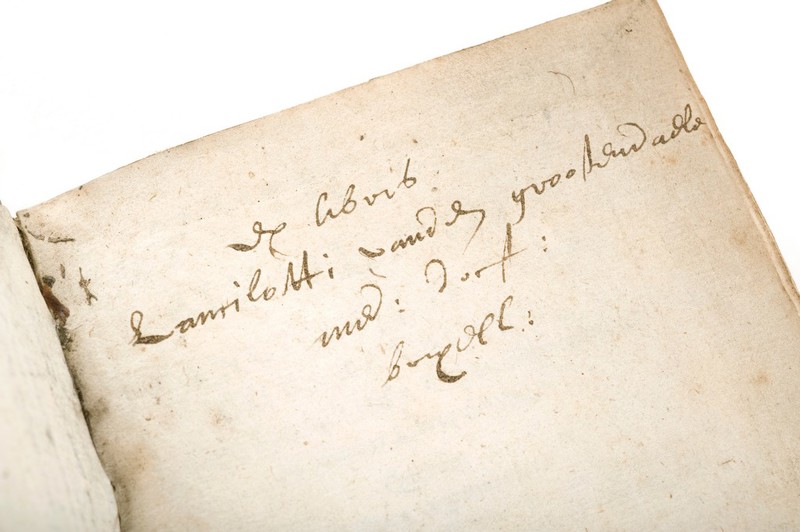 ex libris
Lancilotti vanden grootendaele
med: doct:
bruxell: